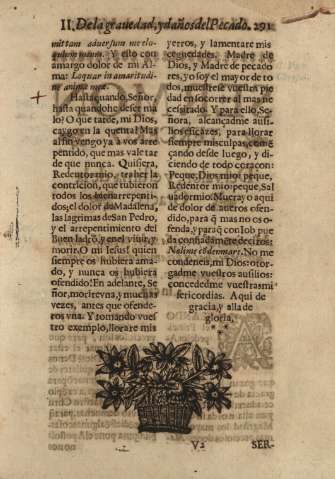 II. De la grauedad, y daños del Pecado. 291
mittam aduersum me elo
quium meum. Y esto con
amargo dolor de mi Al-
ma: Loquar in amaritudi-
ne animæ meæ.
Hasta quando, Señor,
hasta quando he de ser ma
lo? O que tarde, mi Dios,
caygo en la quenta! Mas
al fin vengo ya à vos arre
pentido, que mas vale tar
de que nunca. Quisiera,
Redentor mio, traher la
contricion, que tubieron
todos los buenos arrepenti-
dos; el dolor de Madalena,
las lagrimas de San Pedro,
y el arrepentimiento del
Buen ladrõ, y en el viuir, y
morir. O mi Iesus! quien
siempre os hubiera ama-
do, y nunca os hubiera
ofendido! En adelante, Se
ñor, morir e vna, y muchas
vezes, antes que ofende-
ros vna. Y tomando vues
tro exemplo, llorare mis
yerros, y lamentare mis
necesidades. Madre de
Dios, y Madre de pecado
res, yo soy el mayor de to-
dos, muestrese vuestra pie
dad en socorrer al mas ne
cesitado. Y para ello, Se-
ñora, alcançadme auxi-
lios eficazes, para llorar
siempre mis culpas, come-
çando desde luego, y di-
ciendo de todo coraçon:
Peque, Dios mio: peque,
Redentor mio: peque, Sal
uador mio. Muera yo aqui
de dolor de aueros ofen-
dido, para q mas no os o-
fenda, y para q con Iob pue
da confiadamẽte deciros:
Noli me condemnare. No me
condeneis, mi Dios: otor-
gadme vuestros ausilios:
concededme vuestras mi
sericordias. Aqui de
gracia, y alla de
gloria.
V 2 SER-